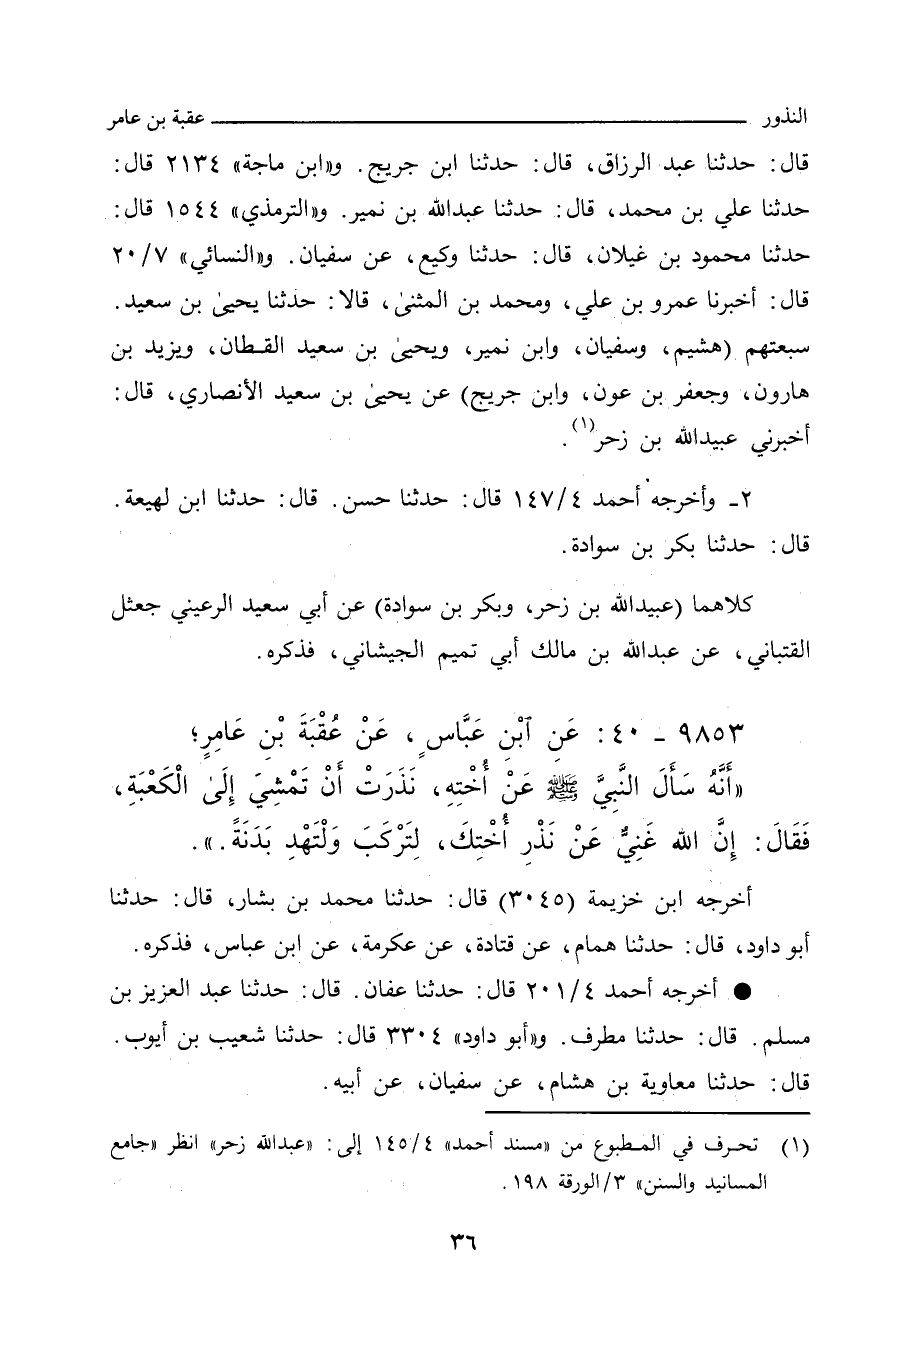 النذور ــــــــــــــــــــــــ عقبة بن عامر
قال: حدثنا عبد الرزاق، قال: حدثنا ابن جريج. و«ابن ماجة» ٢١٣٤ قال:
حدثنا علي بن محمد، قال: حدثنا عبدالله بن نمير. و«الترمذي» ١٥٤٤ قال:
حدثنا محمود بن غيلان، قال: حدثنا وكيع، عن سفيان. و«النسائي» ٢٠/٧
قال: أخبرنا عمرو بن علي، ومحمد بن المثنىٰ، قالا: حدثنا يحيىٰ بن سعيد.
سبعتهم (هشيم، وسفيان، وابن نمير، ويحيىٰ بن سعيد القطان، ويزيد بن
هارون، وجعفر بن عون، وابن جريج) عن يحيىٰ بن سعيد الأنصاري، قال:
أخبرني عبيدالله بن زحر(١).
٢ـ وأخرجه أحمد ١٤٧/٤ قال: حدثنا حسن. قال: حدثنا ابن لهيعة.
قال: حدثنا بكر بن سوادة.
كلاهما (عبيدالله بن زحر، وبكر بن سوادة) عن أبي سعيد الرعيني جعثل
القتباني، عن عبدالله بن مالك أبي تميم الجيشاني، فذكره.
٩٨٥٣ ـ ٤٠: عَنِ ٱبْنِ عَبَّاسٍ، عَنْ عُقْبَةَ بْنِ عَامِرٍ؛
«أَنَّهُ سَأَلَ النَّبِيَّ ﷺ عَنْ أُخْتِهِ، نَذَرَتْ أَنْ تَمْشِيَ إِلَىٰ الْكَعْبَةِ،
فَقَالَ: إِنَّ الله غَنِيٌّ عَنْ نَذْرِ أُخْتِكَ، لِتَرْكَبَ وَلْتَهْدِ بَدَنَةً.».
أخرجه ابن خزيمة (٣٠٤٥) قال: حدثنا محمد بن بشار، قال: حدثنا
أبو داود، قال: حدثنا همام، عن قتادة، عن عكرمة، عن ابن عباس، فذكره.
● أخرجه أحمد ٢٠١/٤ قال: حدثنا عفان. قال: حدثنا عبد العزيز بن
مسلم. قال: حدثنا مطرف. و«أبو داود» ٣٣٠٤ قال: حدثنا شعيب بن أيوب.
قال: حدثنا معاوية بن هشام، عن سفيان، عن أبيه.
(١) تحرف في المطبوع من «مسند أحمد» ١٤٥/٤ إلى: «عبدالله زحر» انظر «جامع
المسانيد والسنن» ٣/الورقة ١٩٨.
٣٦